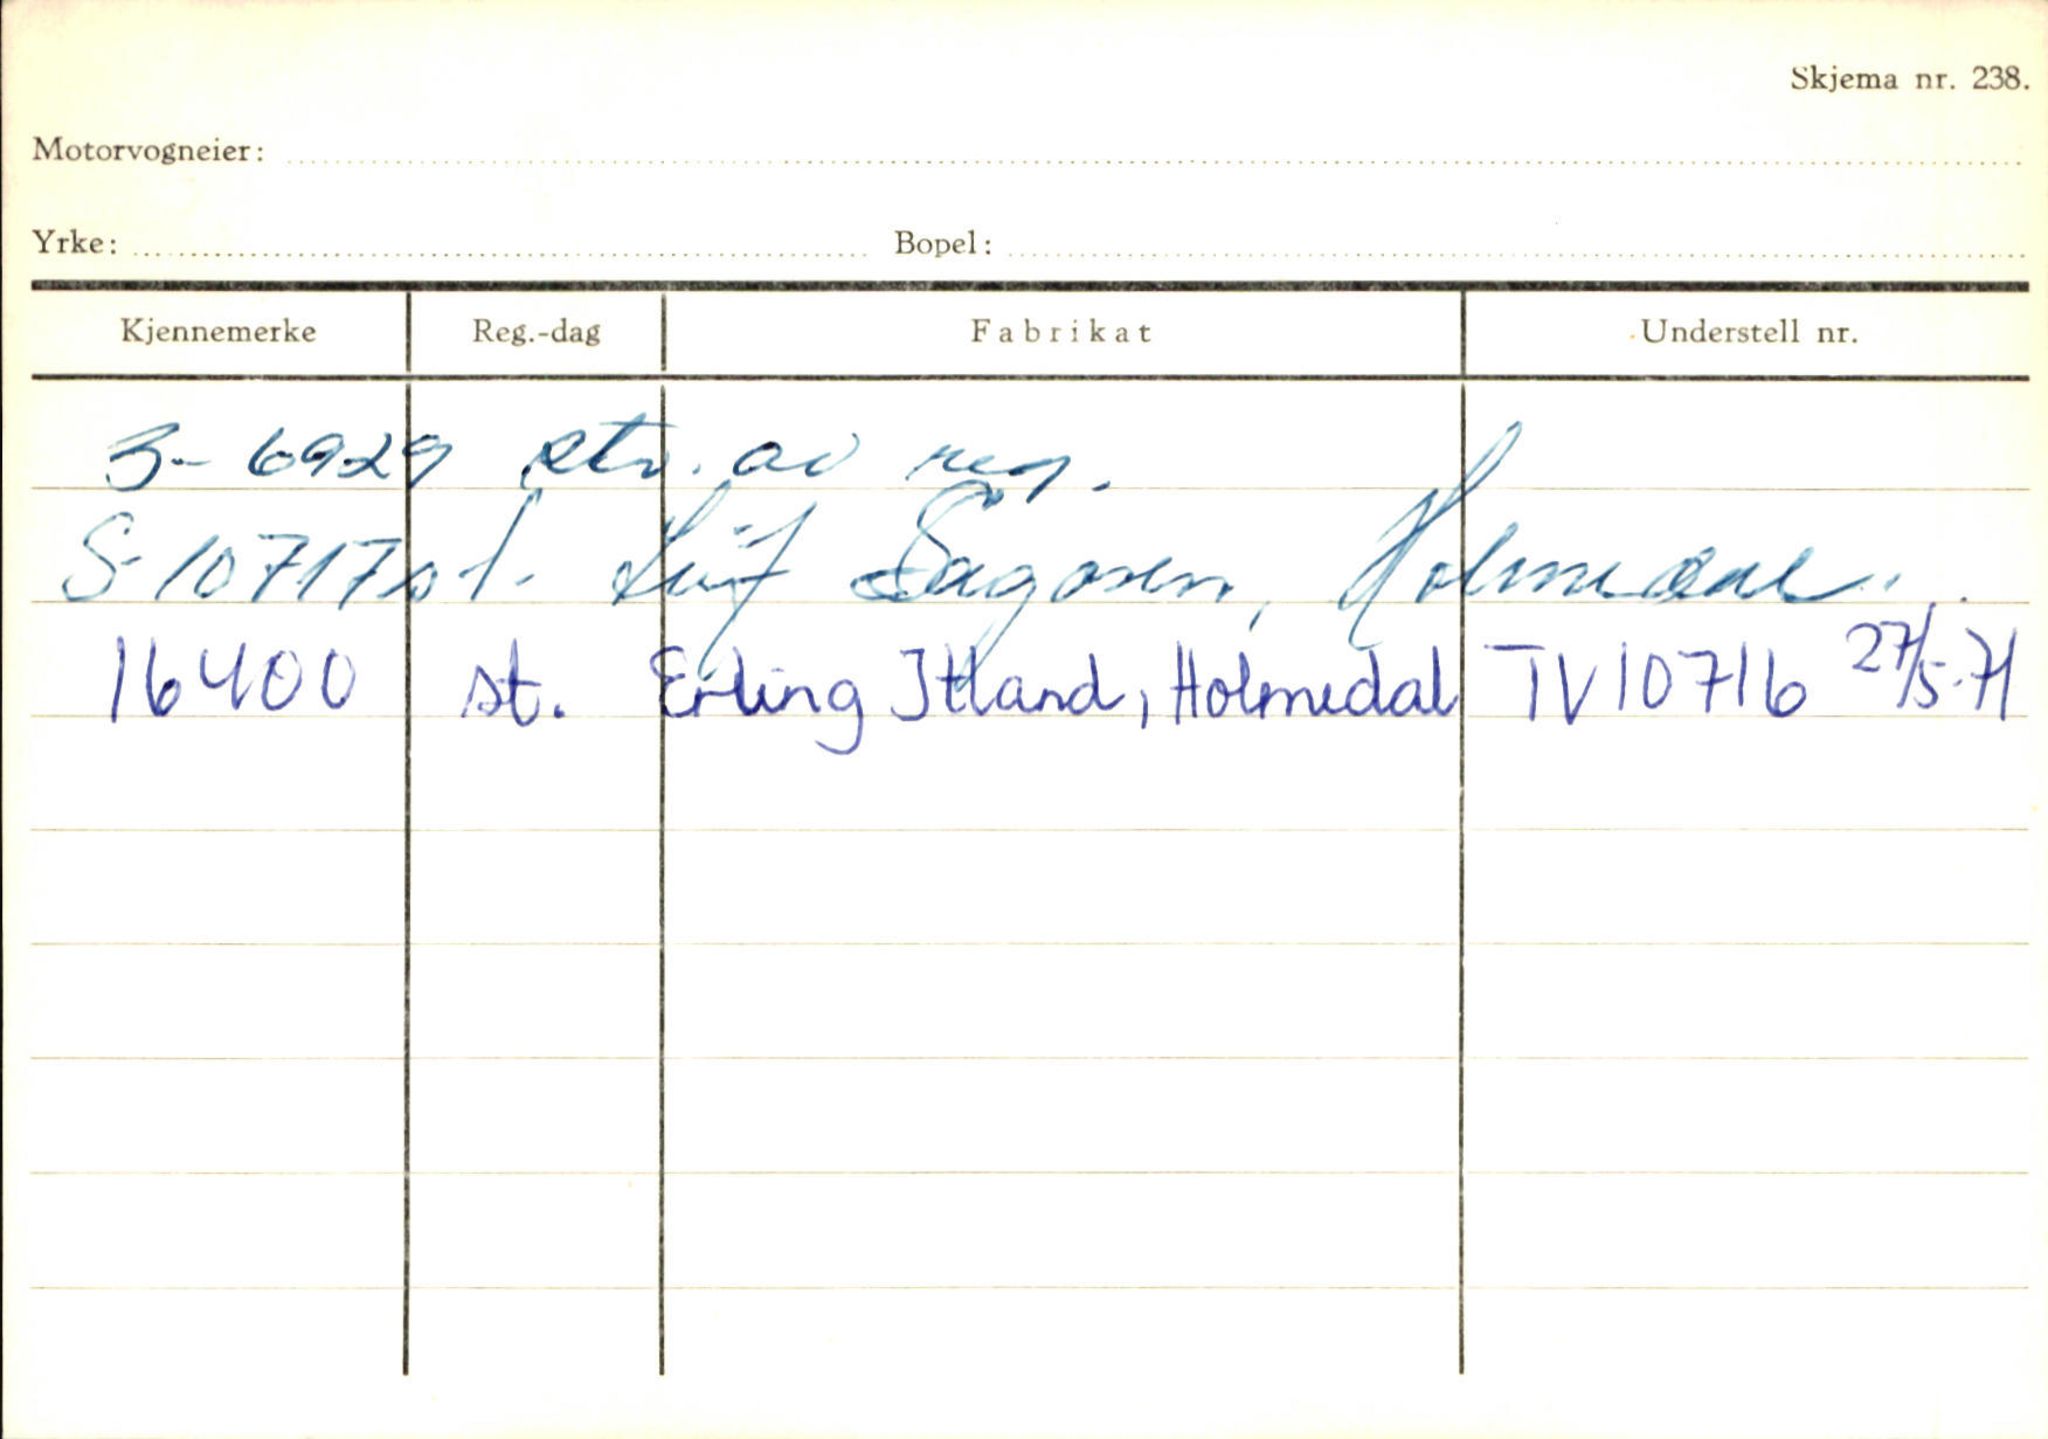 Skjema nr. 238.
Motorvogneier:
Yrke: Bopel:
Kjennemerke Reg.-dag Fabrikat Understell nr.
3- 6929 av reg.
S-10717 st. Leif Sagosen, Holmedal.
16400 st. Erling Itland, Holmedal TV10716 27/5-71